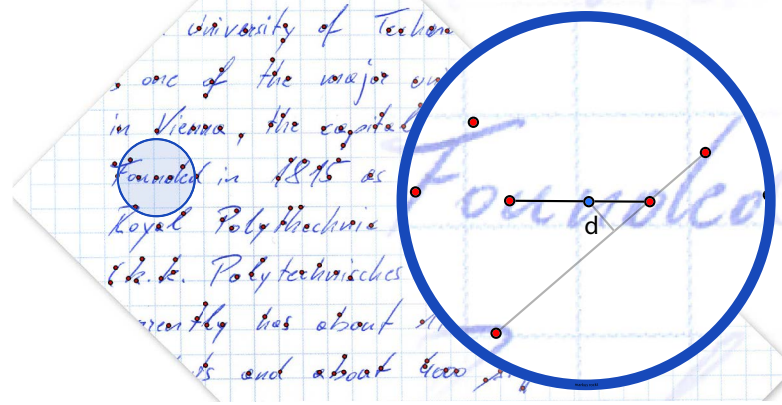 University of Techn
, one of the major uni
in Vienna, the capital
Founded in 1815 as
Royal Polythechnic
(k.k. Polytechnisches
rently has about
and about 4000
Founded
d